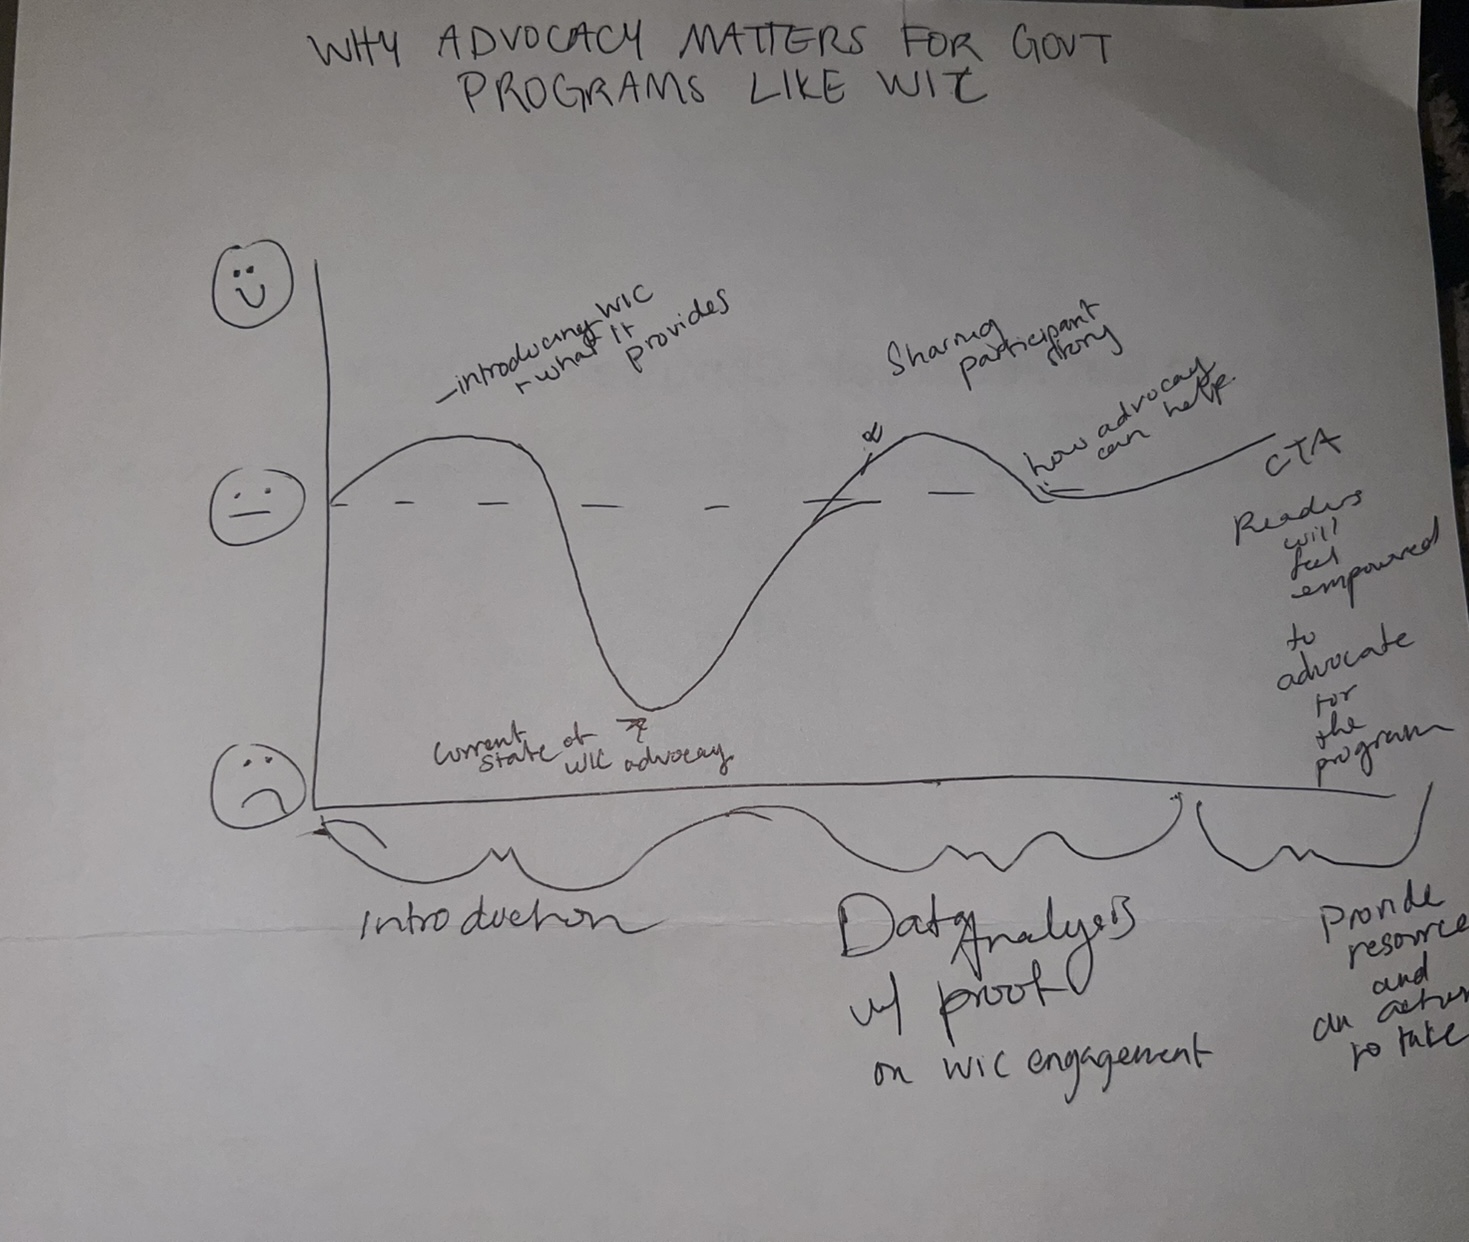 WHY ADVOCACY MATTERS FOR GOVT
PROGRAMS LIKE WIC
introducing WIC
+ what it
provides
Sharing
participant
story
how advocacy
can help
CTA
Readers
will
feel
empowered
to
advocate
for
the
program
Current
state of
WIC advocacy
Introduction
Data
Analysis
w/ proof
on WIC engagement
Provide
resource
and
an action
to take